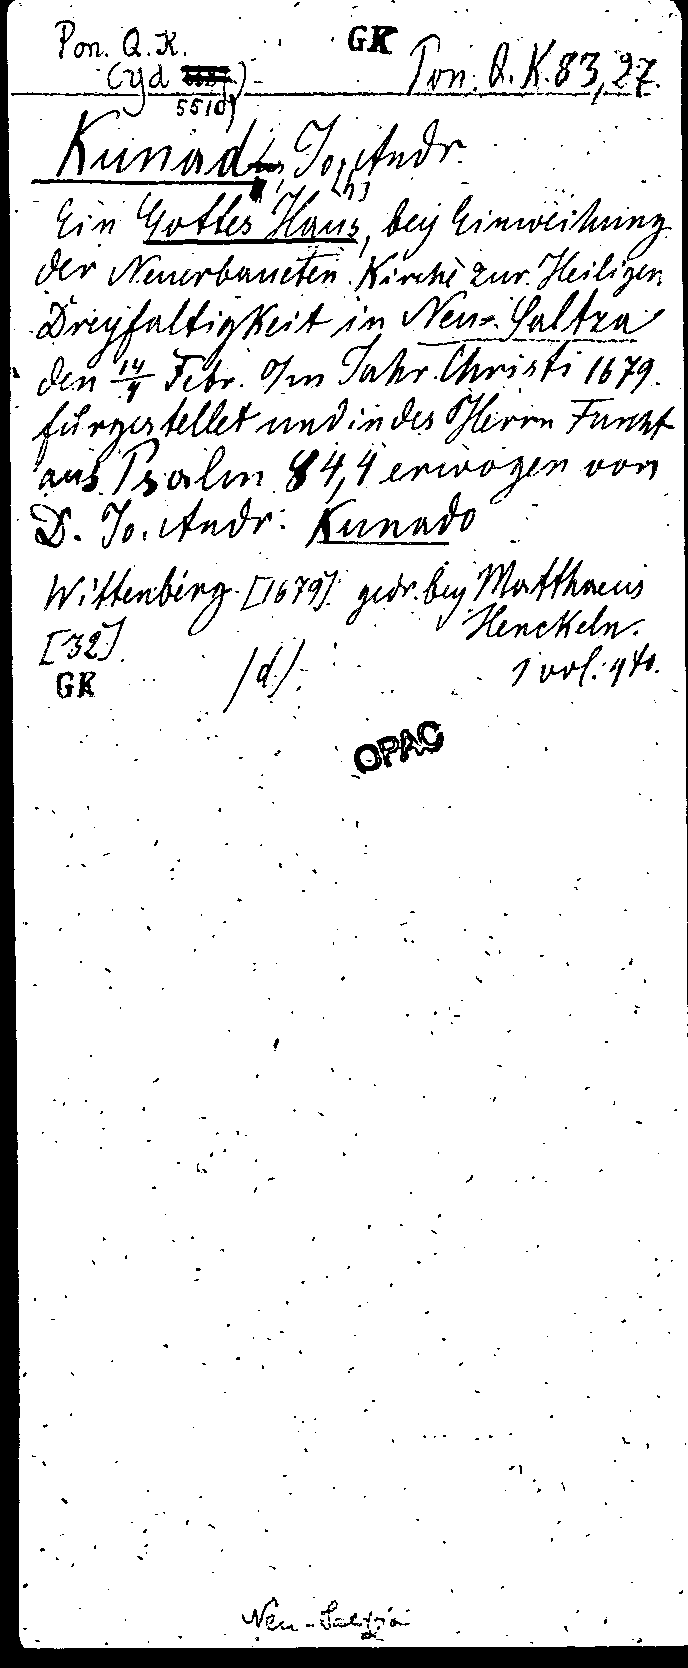 Pon. Q. K. GK
(yd 5510) Pon. Q. K. 83,27
Kunad, Jo. Andr.
Ein Gottes Haus, bey Einweihung
der Neuerbaueten Kirche zur Heiligen
Dreyfaltigkeit in Neu-Saltza
den 14/4 Febr. Im Jahr Christi 1679
fürgestellet und in des Herrn Furcht
aus Psalm 84,4 erwogen von
D. Jo. Andr. Kunado
Wittenberg [1679] gedr. bey Matthaeus
Henckeln.
[32]
GK /d/ 1 vol. 4to.
OPAC
Neu-Saltza